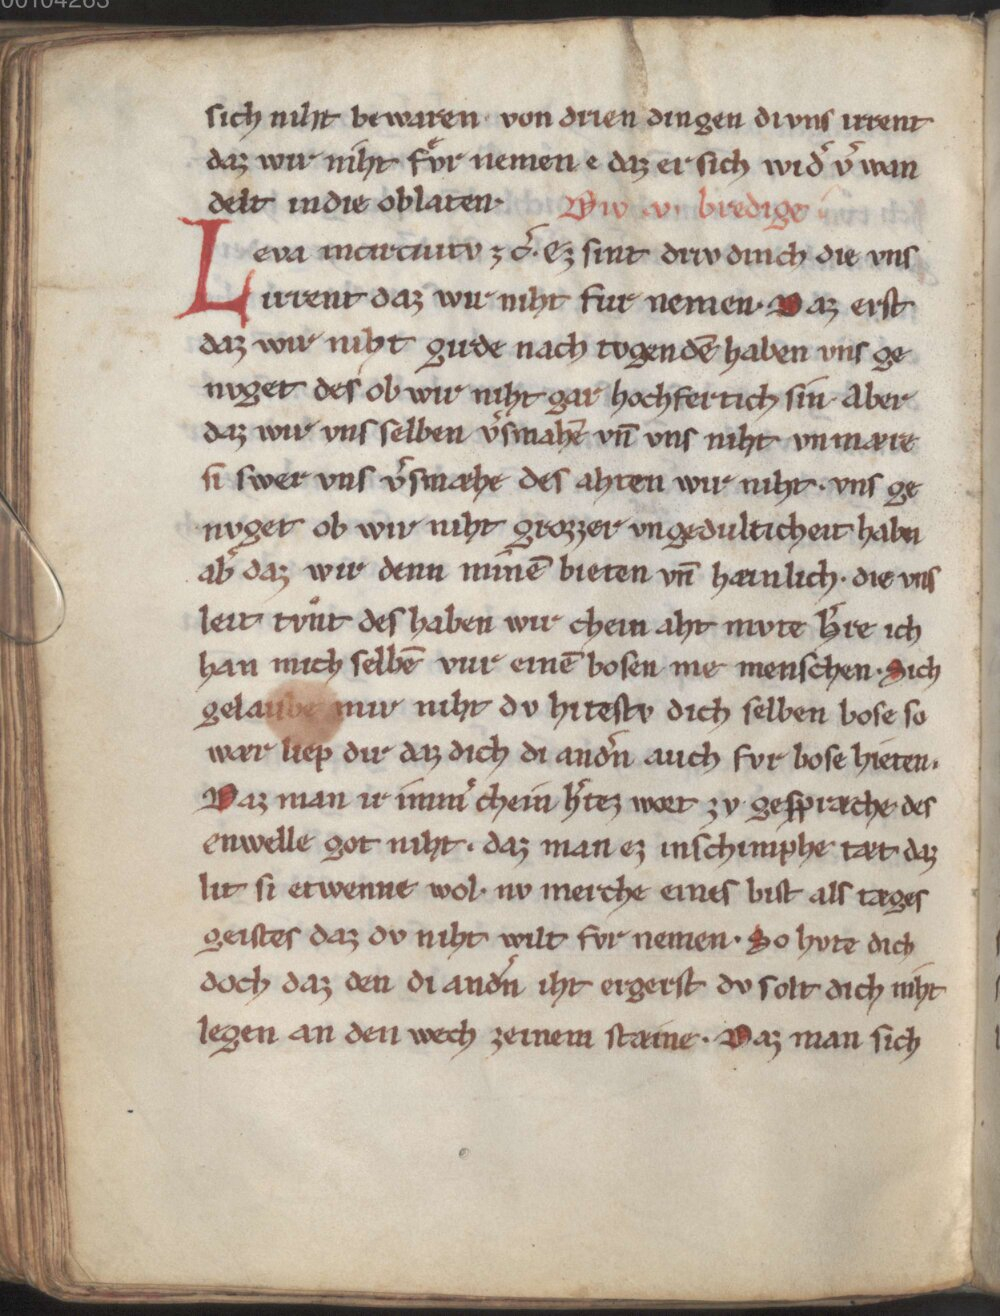 00104263
sich niht bewaren· von drien dingen di vns irrent
daz wir niht fvͤr nemen e daz er sich wid̾ v̾ wan
delt in die oblaten· Div ·v· bredige
Leva in circuitv ⁊ c̾· Ez sint driv dinch die vns
irrent daz wir niht fur nemen· Daz erst
daz wir niht girde nach tvgendē haben vns ge
nvget des ob wir niht gar hochfertich sin· Aber
daz wir vns selben v̾smahē vn̄ vns niht vnmære
si swer vns v̾smæhe des ahten wir niht· vns ge
nvget ob wir niht grozzer vngedulticheit habn
ab̾ daz wir denn minē bieten vn̄ hæinlich· die vns
leit tvͦnt des haben wir chein aht mvte h̾re ich
han mich selbē vur einē bosen me menschen· Sich
gelaube mir niht dv hitestv dich selben bose so
wær liep dir daz dich di and̾n auch fvr bose hieten·
Daz man ir imm̾ chein h̾tez wort zv gespræche des
enwelle got niht· daz man ez in schimphe tæt daz
lit si etwenne wol· nv merche eines bist als træges
geistes daz dv niht wilt fvr nemen· So hvte dich
doch daz den di and̾n iht ergerst dv solt dich niht
legen an den wech zeinem stæine· Daz man sich